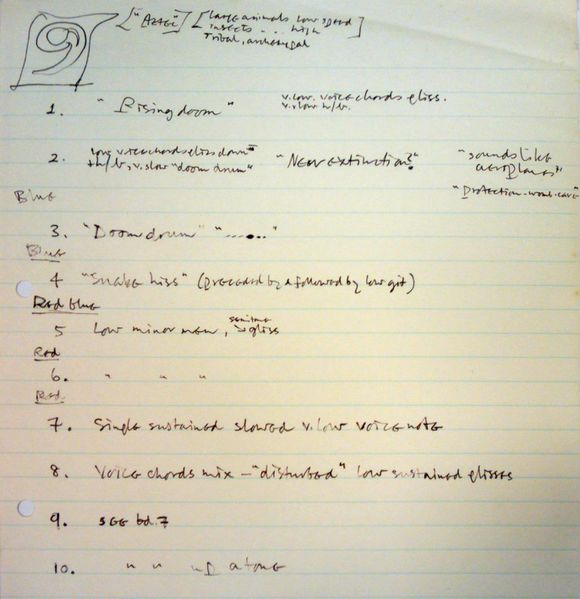 ["Aztec"] [large animals low speed
insects . . . high
Tribal, archetypal]
1. "Rising doom" v. low. voice chords gliss.
v. slow h/b.
2. low voice chords gliss down
+ h/b, v. slow "doom drum" "Near extinction?" "sounds like
aeroplanes"
"Protection-womb-cave"
Blue
3. "Doom drum" "......"
Blue
4 "Snake hiss" (preceded by & followed by low git)
Red blue
5 Low minor new, semitone
gliss
Red
6. " " "
Red
7. Single sustained slowed v. low voice note
8. Voice chords mix - "disturbed" low sustained glisses
9. see bd. 7
10. " " up a tone